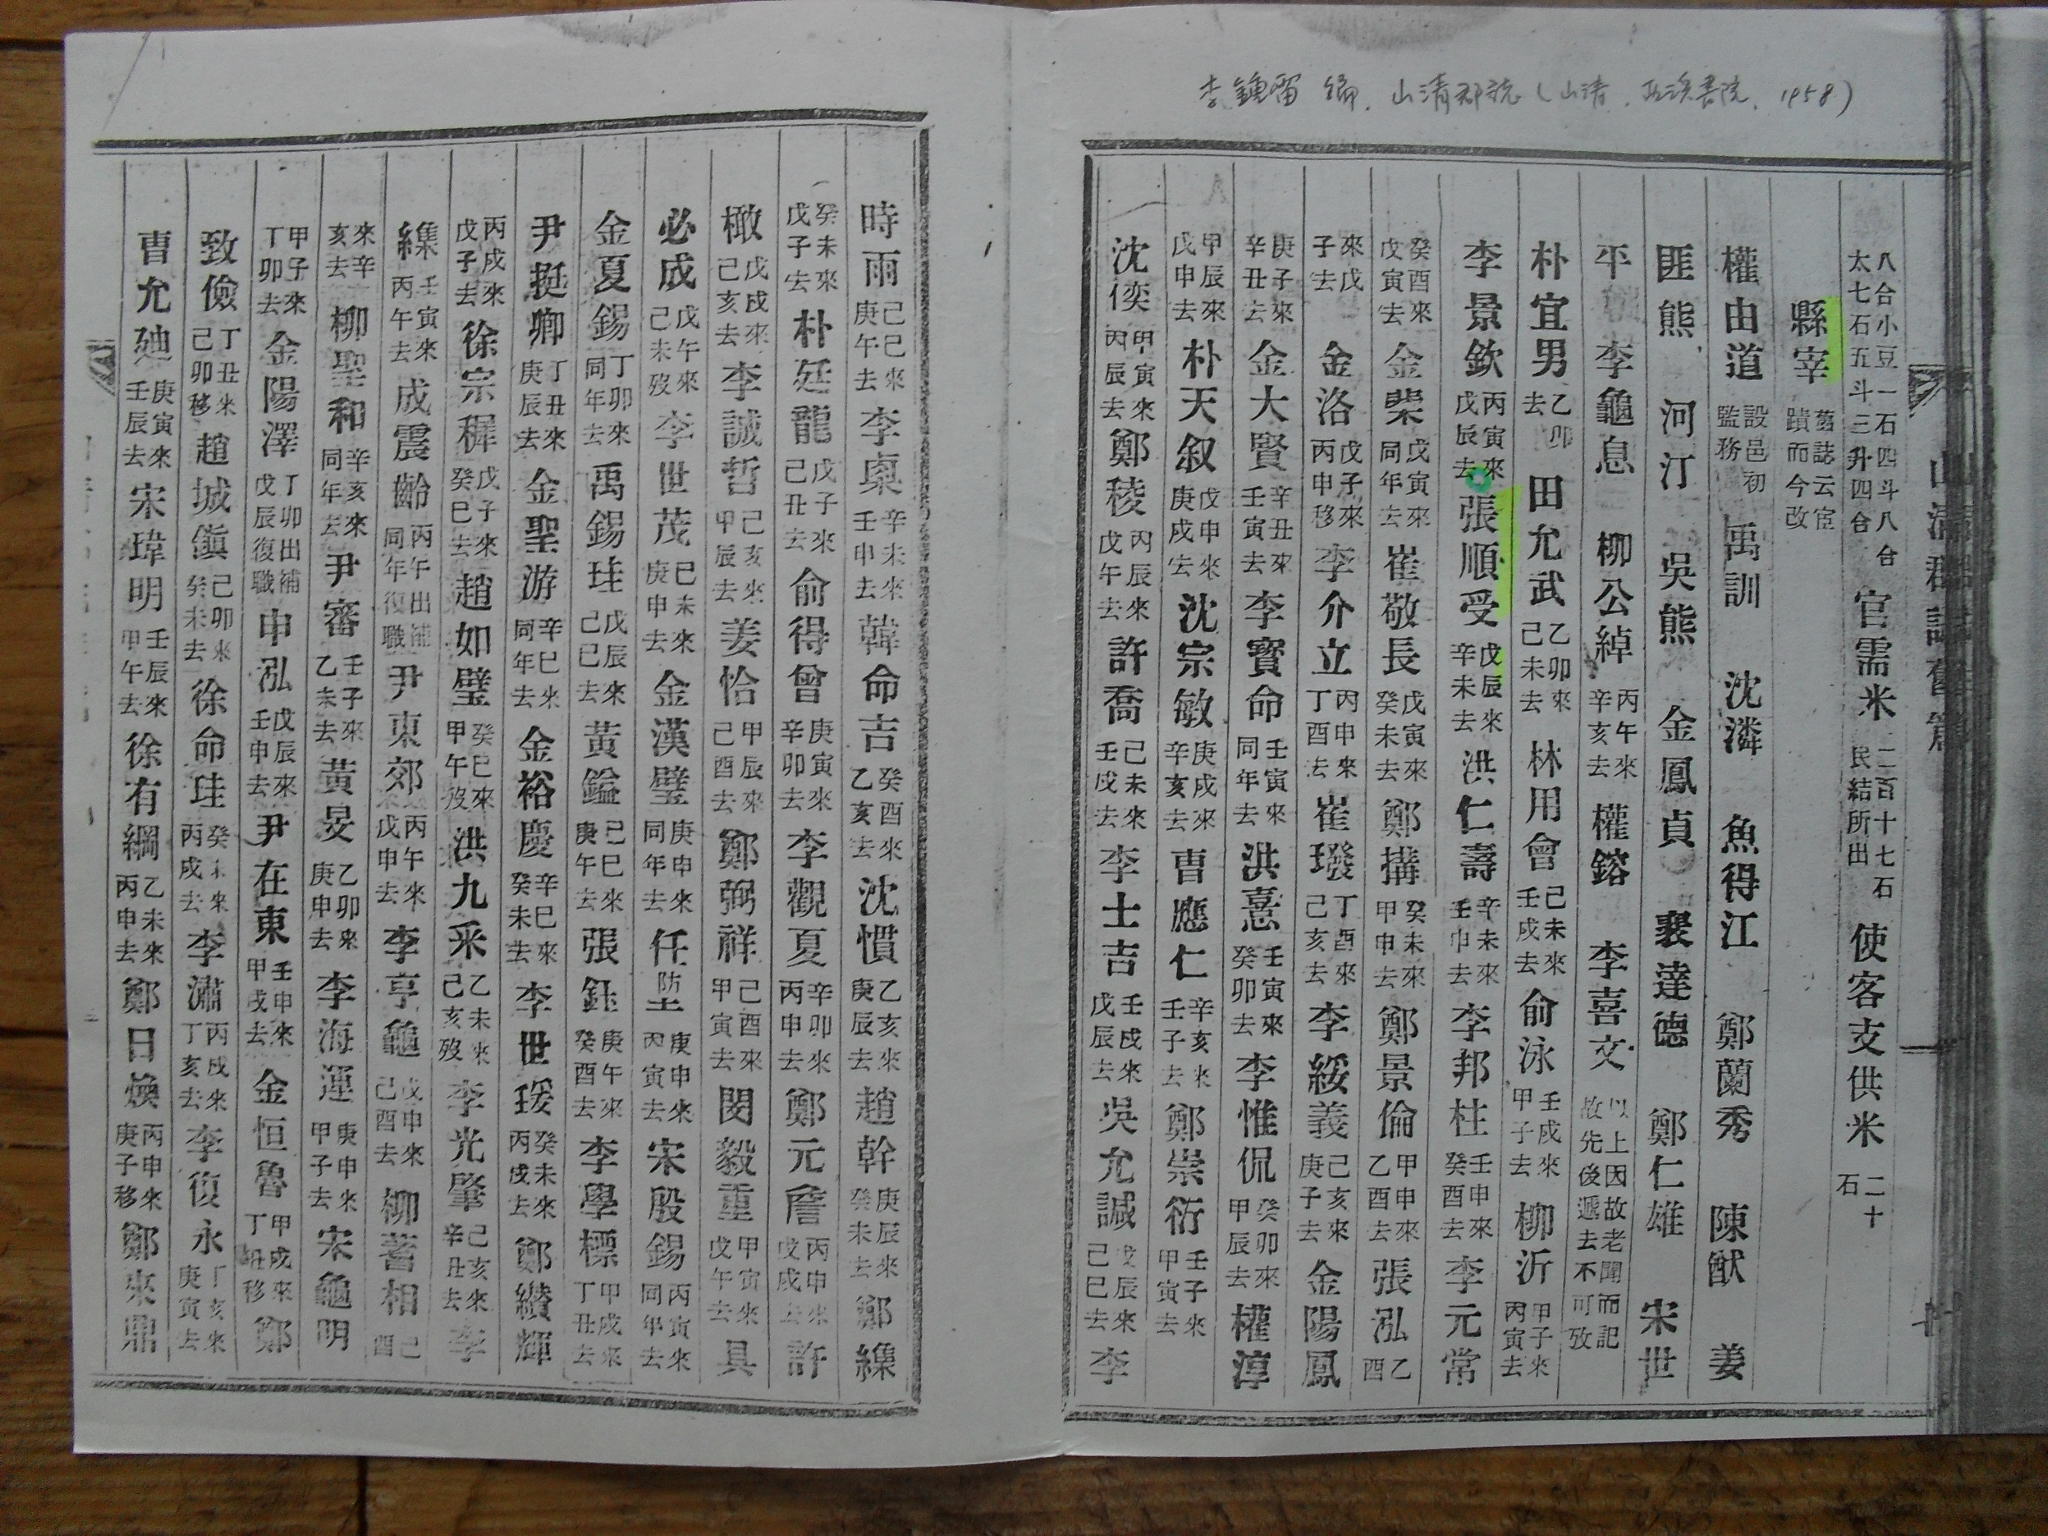 李鍾 編. 山清郡誌 (山清, 書院, 1958)
山清郡誌舊篇
八合小豆一石四斗八合
太七石五斗三升四合
官需米 二百十七石 民結所出 使客支供米 二十石
縣宰 舊誌云宦蹟而今改
權由道 設邑初監務 禹訓 沈潾 魚得江 鄭蘭秀 陳猷 姜
匪熊 河汀 吳熊 金鳳貞 裵達德 鄭仁雄 宋世
平 李龜息 柳公綽 丙午來辛亥去 權鎔 李喜文 以上因故老聞而記故先後遞去不可攷
朴宜男 乙卯去 田允武 乙卯來己未去 林用會 己未來壬戌去 俞泳 壬戌來甲子去 柳沂 甲子來丙寅去
李景欽 丙寅來戊辰去 張順受 戊辰來辛未去 洪仁壽 辛未來壬申去 李邦柱 壬申來癸酉去 李元常
癸酉來戊寅去 金榮 戊寅來同年去 崔敬長 戊寅來癸未去 鄭搆 癸未來甲申去 鄭景倫 甲申來乙酉去 張泓 乙酉
來戊子去 金洛 戊子來丙申移 李介立 丙申來丁酉去 崔 丁酉來己亥去 李綏義 己亥來庚子去 金陽鳳
庚子來辛丑去 金大賢 辛丑來壬寅去 李寶命 壬寅來同年去 洪憙 壬寅來癸卯去 李惟侃 癸卯來甲辰去 權淳
甲辰來戊申去 朴天叙 戊申來庚戌去 沈宗敏 庚戌來辛亥去 曹應仁 辛亥來壬子去 鄭崇衍 壬子來甲寅去
沈 甲寅來丙辰去 鄭稜 丙辰來戊午去 許喬 己未來壬戌去 李士吉 壬戌來戊辰去 吳允誠 戊辰來己巳去 李
時雨 己巳來庚午去 李稟 辛未來壬申去 韓命吉 癸酉來乙亥去 沈慣 乙亥來庚辰去 趙幹 庚辰來癸未去 鄭
癸未來戊子去 朴廷龍 戊子來己丑去 俞得曾 庚寅來辛卯去 李觀夏 辛卯來丙申去 鄭元 丙申來戊戌去 許
橄 戊戌來己亥去 李誠哲 己亥來甲辰去 姜恰 甲辰來己酉去 鄭弼祥 己酉來甲寅去 閔毅重 甲寅來戊午去 具
必成 戊午來己未歿 李世茂 己未來庚申去 金漢璧 庚申來同年去 任防 庚申來丙寅去 宋殷錫 丙寅來同年去
金夏錫 丁卯來同年去 禹錫珪 戊辰來己巳去 黃鎰 己巳來庚午去 張 庚午來癸酉去 李學標 甲戌來丁丑去
尹挺卿 丁丑來庚辰去 金聖游 辛巳來同年去 金裕慶 辛巳來癸未去 李世瑗 癸未來丙戌去 鄭纘輝
丙戌來戊子去 徐宗穉 戊子來癸巳去 趙如璧 癸巳來甲午歿 洪九采 乙未來己亥歿 李光肇 己亥來辛丑去 李
壬寅來丙午去 成震齡 丙午出補同年復職 尹東郊 丙午來戊申去 李亨龜 戊申來己酉去 柳蓍相 己酉
來辛亥去 柳聖和 辛亥來同年去 尹審 壬子來乙未去 黃旻 乙卯來庚申去 李海運 庚申來甲子去 宋龜明
甲子來丁卯去 金陽澤 丁卯出補戊辰復職 申泓 戊辰來壬申去 尹在東 壬申來甲戌去 金恒魯 甲戌來丁丑移 鄭
致儉 丁丑來己卯移 趙城鎭 己卯來癸未去 徐命珪 癸未來丙戌去 李潚 丙戌來丁亥去 李復永 丁亥來庚寅去
曹允迪 庚寅來壬辰去 宋瑋明 壬辰來甲午去 徐有綱 乙未來丙申去 鄭日煥 丙申來庚子移 鄭來鼎